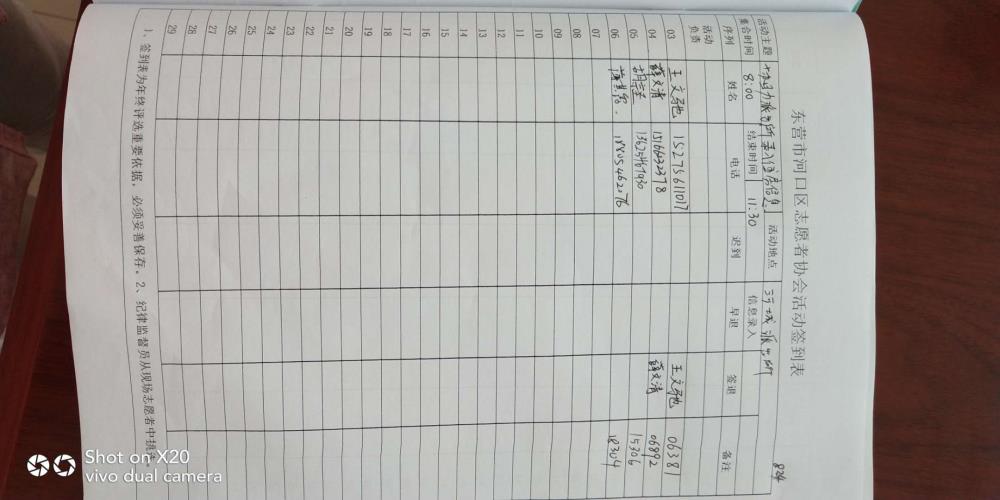 824
东营市河口区志愿者协会活动签到表
活动主题 协助派出所录入住房信息 活动地点 河城派出所
集合时间 8:00 结束时间 11:30 信息录入
序列 姓名 电话 迟到 早退 签退 备注
活动
负责
03 王文弛 15275611017 王文弛 06381
04 薛文清 15166232378 薛文清 06892
05 13625467930 15306
06 18805462076 18304
07
08
09
10
11
12
13
14
15
16
17
18
19
20
21
22
23
24
25
26
27
28
29
1、签到表为年终评选重要依据,必须妥善保存。2、纪律监督员从现场志愿者中挑
Shot on X20
vivo dual camera